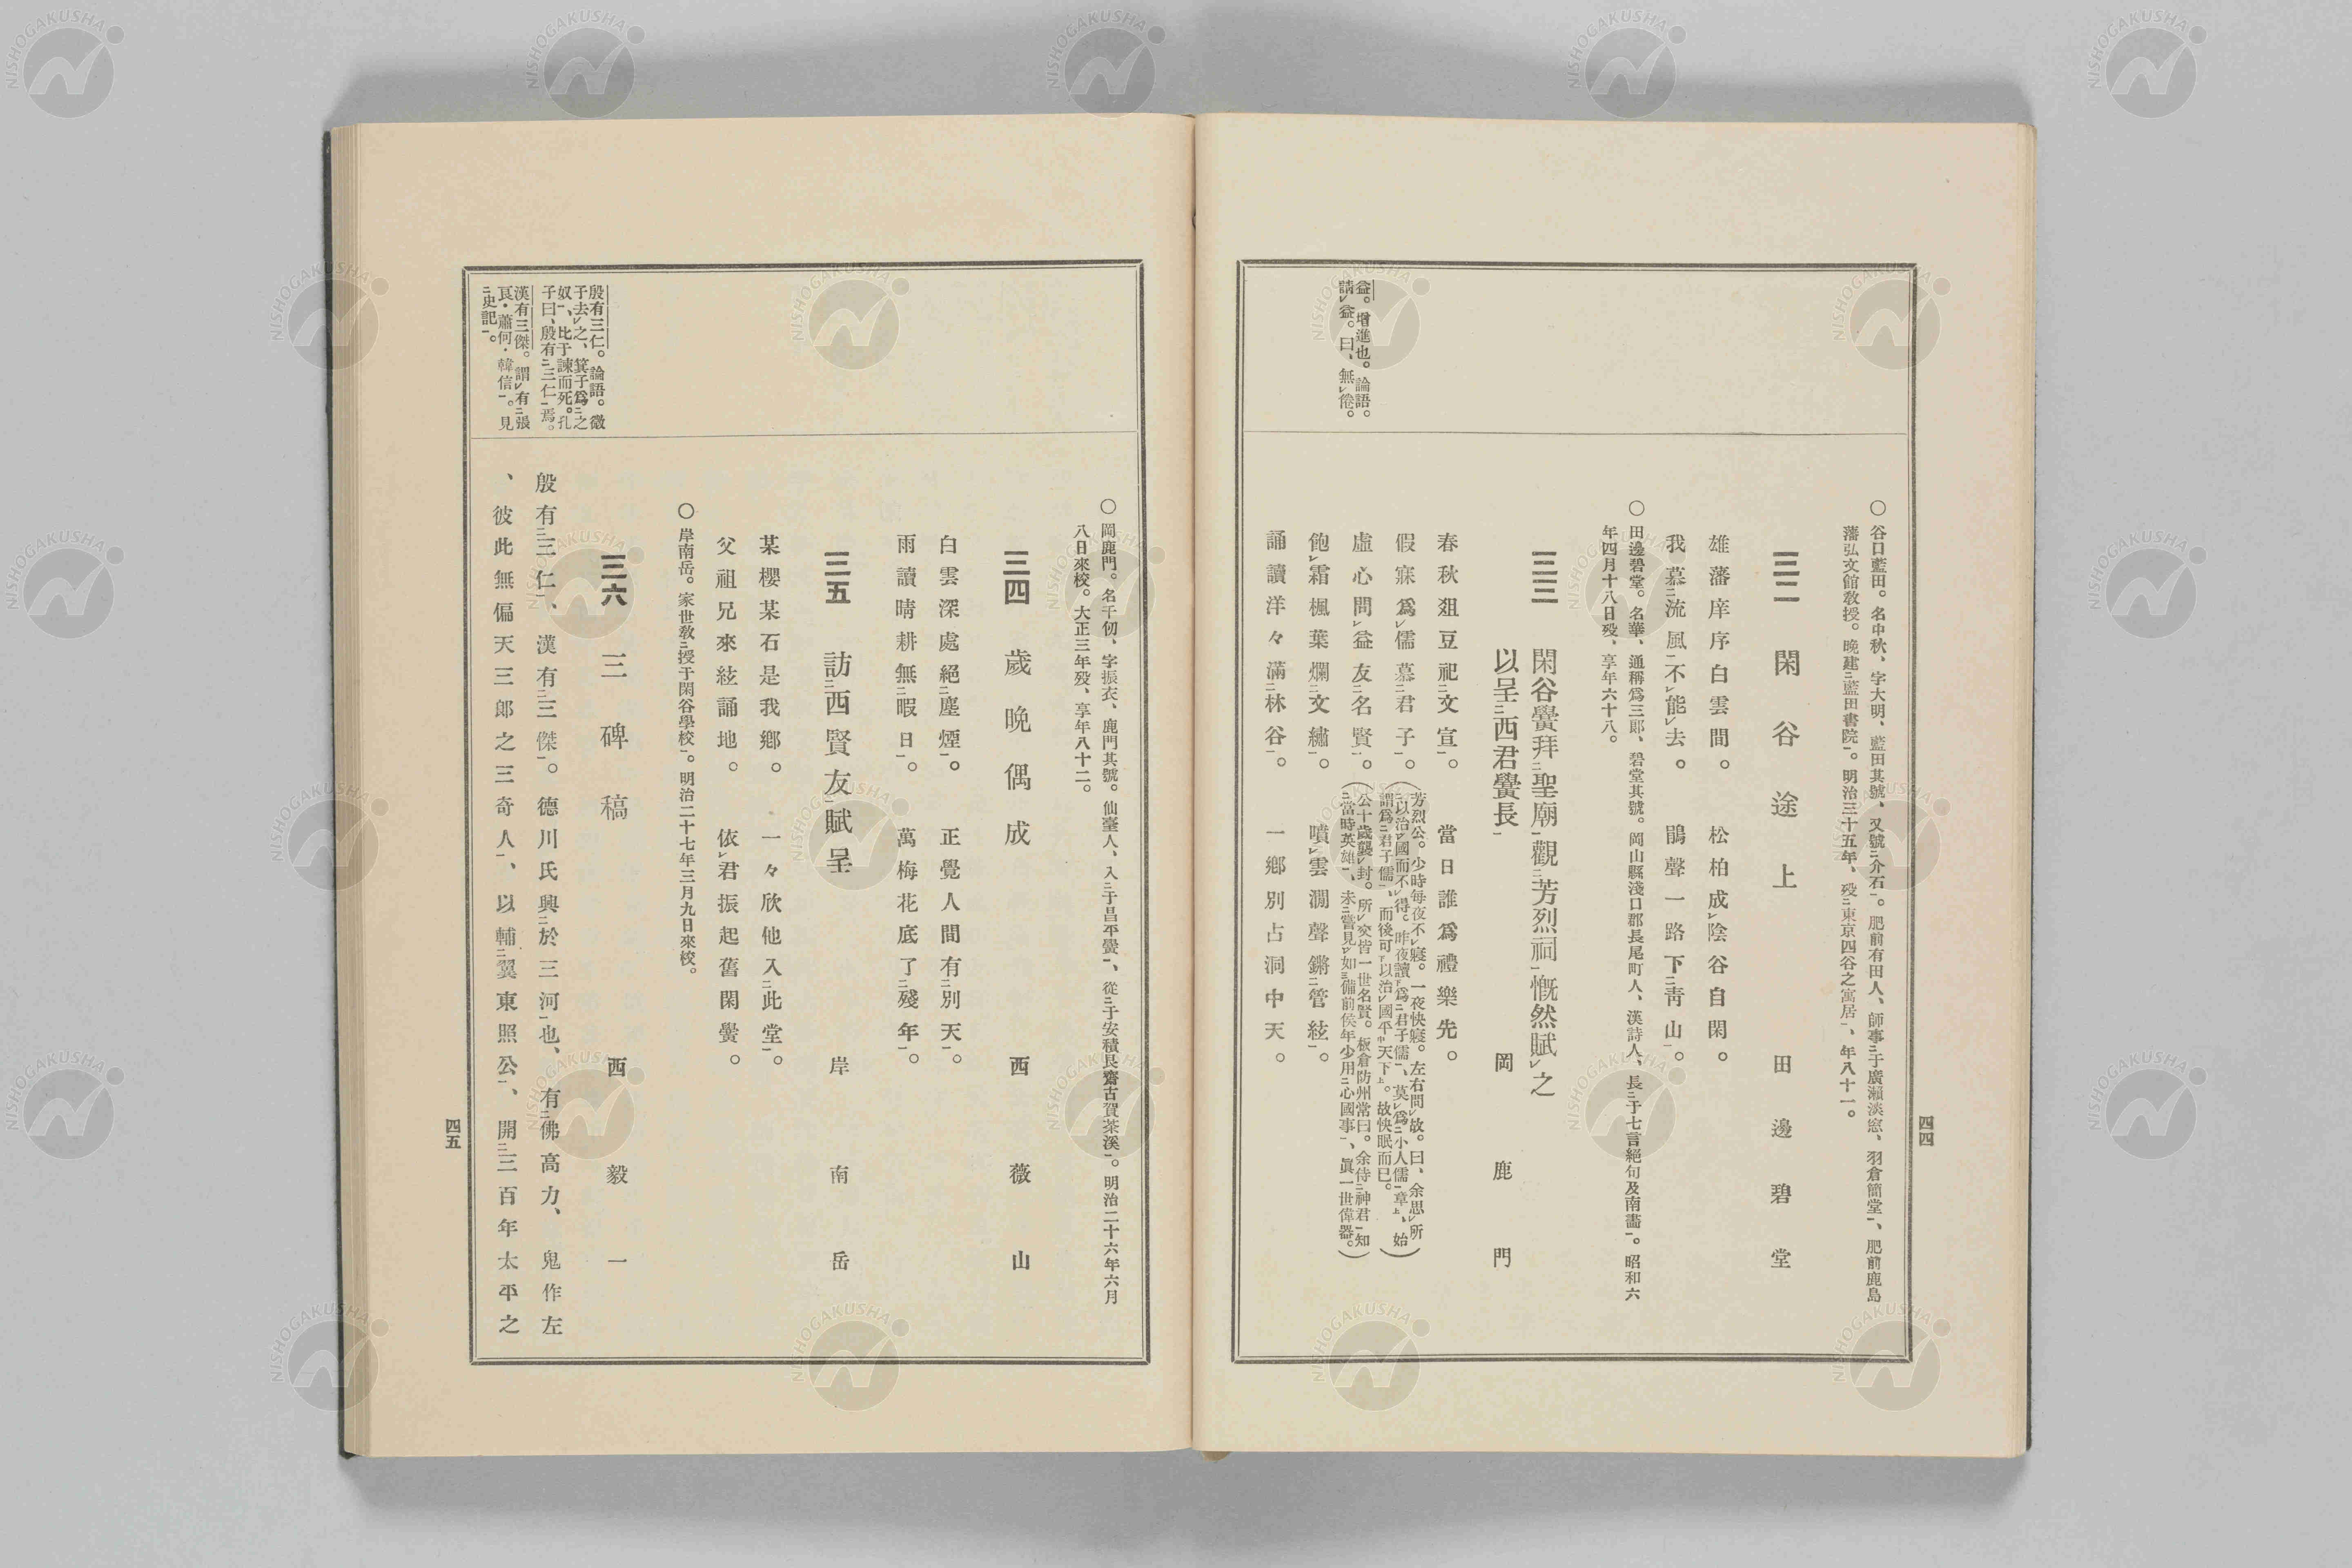 ○ 谷口藍田。名中秋、字大明、藍田其號、又號二介石一。肥前有田人、師事二于廣瀨淡窓、羽倉簡堂一、肥前鹿島
藩弘文館敎授。晩建二藍田書院一。明治三十五年、歿二東京四谷之寓居一、年八十一。
三二 閑谷途上 田邊碧堂
雄藩庠序白雲間。 松柏成レ陰谷自閑。
我慕二流風一不レ能レ去。 鵑聲一路下二靑山一。
○ 田邊碧堂。名華、通稱爲三郞、碧堂其號。岡山縣淺口郡長尾町人、漢詩人、長二于七言絕句及南畵一。昭和六
年四月十八日歿、享年六十八。
三三 閑谷黌拜二聖廟一觀二芳烈祠一慨然賦レ之
以呈二西君黌長一 岡鹿門
春秋俎豆祀二文宣一。 當日誰爲禮樂先。
假寐爲レ儒慕二君子一。
虛心問レ益友二名賢一。
(芳烈公。少時每夜不レ寢。一夜快寢。左右問レ故。曰、余思レ所
二以治一レ國而不レ得。昨夜讀下爲二君子儒一、莫レ爲二小人儒一章上、始
謂爲二君子儒一、而後可三以治レ國平中天下上。故快眠而已。)
(公十歲襲レ封。所レ交皆一世名賢。板倉防州常曰。余侍二神君一知
二當時英雄一、未三嘗見レ如二備前侯年少用二心國事一、眞一世偉器。)
飽レ霜楓葉爛二文繡一。 噴レ雲澗聲鏘二管絃一。
誦讀洋々滿二林谷一。 一鄕別占洞中天。
益。增進也。論語。
請レ益。曰、無レ倦。
四四
○ 岡鹿門。名千仞、字振衣、鹿門其號。仙臺人、入二于昌平黌一、從二于安積艮齋古賀茶溪一。明治二十六年六月
八日來校。大正三年歿、享年八十二。
三四 歲晩偶成 西薇山
白雲深處絕二塵煙一。 正覺人間有二別天一。
雨讀晴耕無二暇日一。 萬梅花底了二殘年一。
三五 訪二西賢友一賦呈 岸南岳
某櫻某石是我鄕。 一々欣他入二此堂一。
父祖兄來絃誦地。 依レ君振起舊閑黌。
○ 岸南岳。家世敎二授于閑谷學校一。明治二十七年三月九日來校。
三六 三碑稿 西毅一
殷有二三仁一、漢有二三傑一。德川氏興二於三河一也、有二佛高力、鬼作左
、彼此無偏天三郞之三奇人一、以輔二翼東照公一、開二三百年太平之
殷有三仁。論語。微
子去レ之、箕子爲二之
奴一、比干諫而死。孔
子曰、殷有二三仁一焉。
漢有三傑。謂レ有二張
良・蕭何・韓信一。見
二史記一。
四五